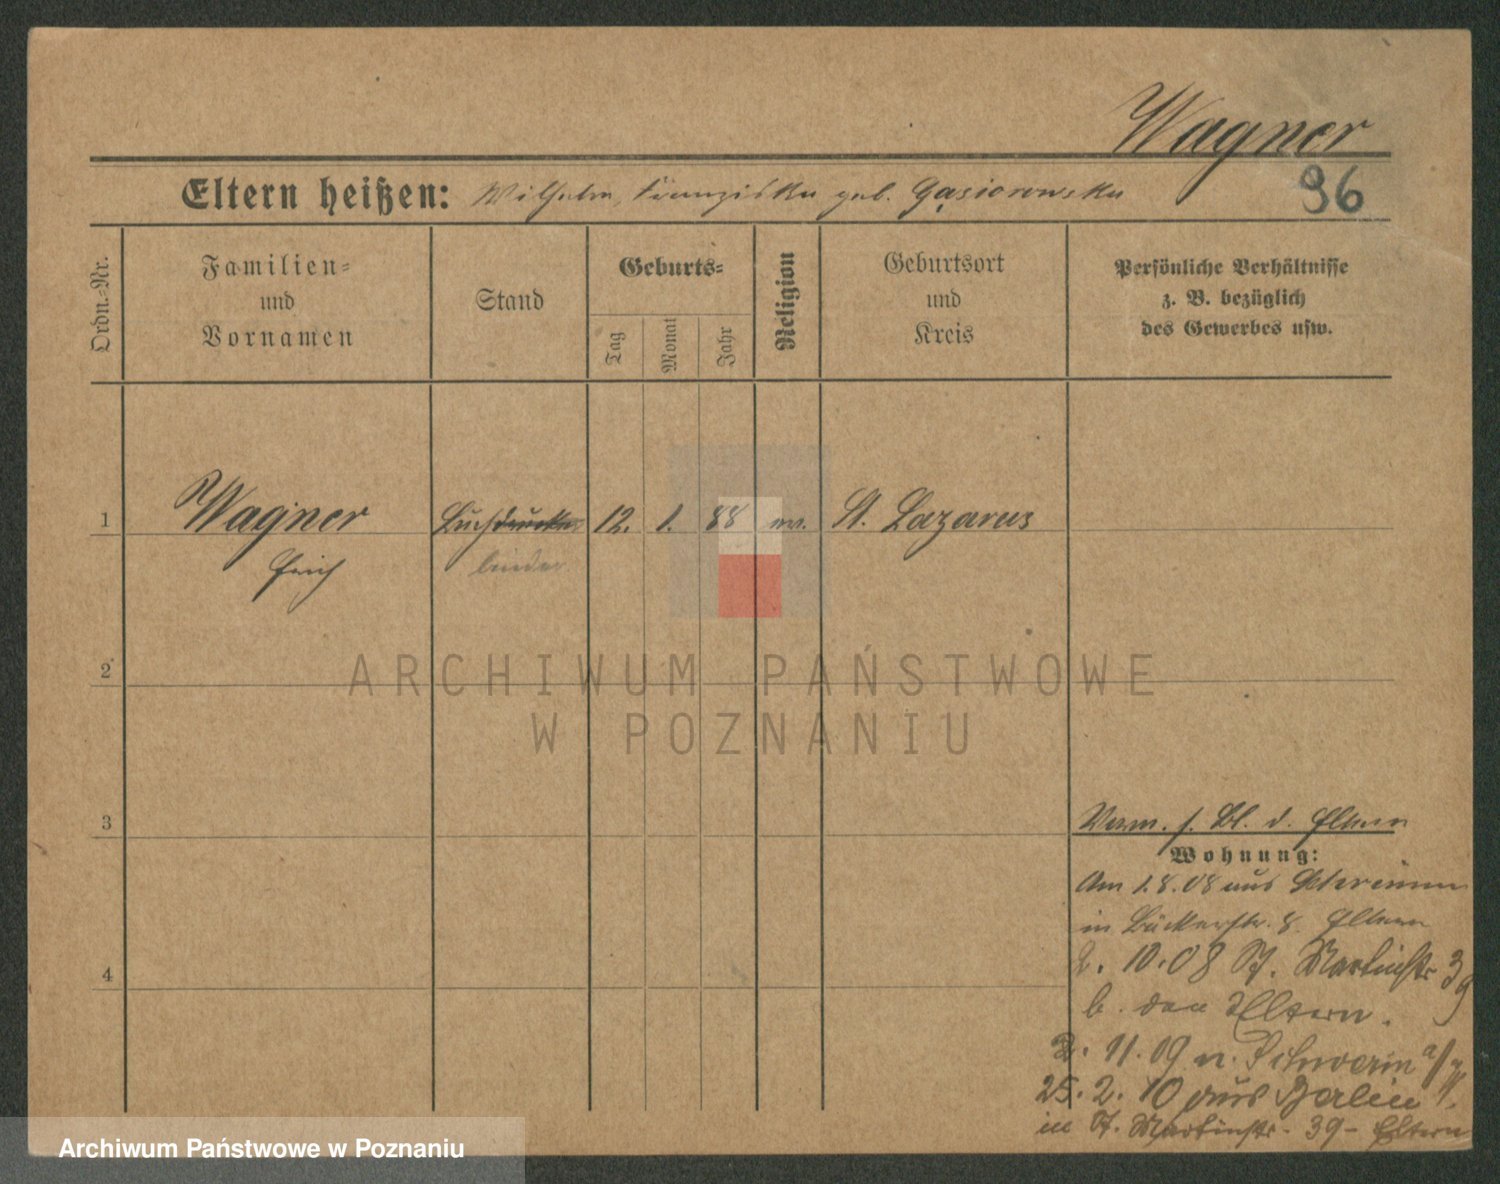 Wagner
96
Eltern heißen: Wilhelm, Franziska geb. Gąsiorowska
Ordn.-Nr.
Familien-
und
Vornamen
Stand
Geburts-
Tag
Monat
Jahr
Religion
Geburtsort
und
Kreis
Persönliche Verhältnisse
z. B. bezüglich
des Gewerbes usw.
1 Wagner Buchdrucker 12. 1. 88 ev. St. Lazarus
Erich binder
2
3
Verm. s. Bl. d. Eltern
Wohnung:
Am 1.8.08 aus Schrimm
in Bäckerstr. 8. Eltern
4
2. 10.08 St. Martinstr 39
b. den Eltern.
2. 11.09 n. Schwerin a/W
25. 2. 10 aus Berlin
in St. Martinstr. 39 - Eltern
ARCHIWUM PAŃSTWOWE
W POZNANIU
Archiwum Państwowe w Poznaniu